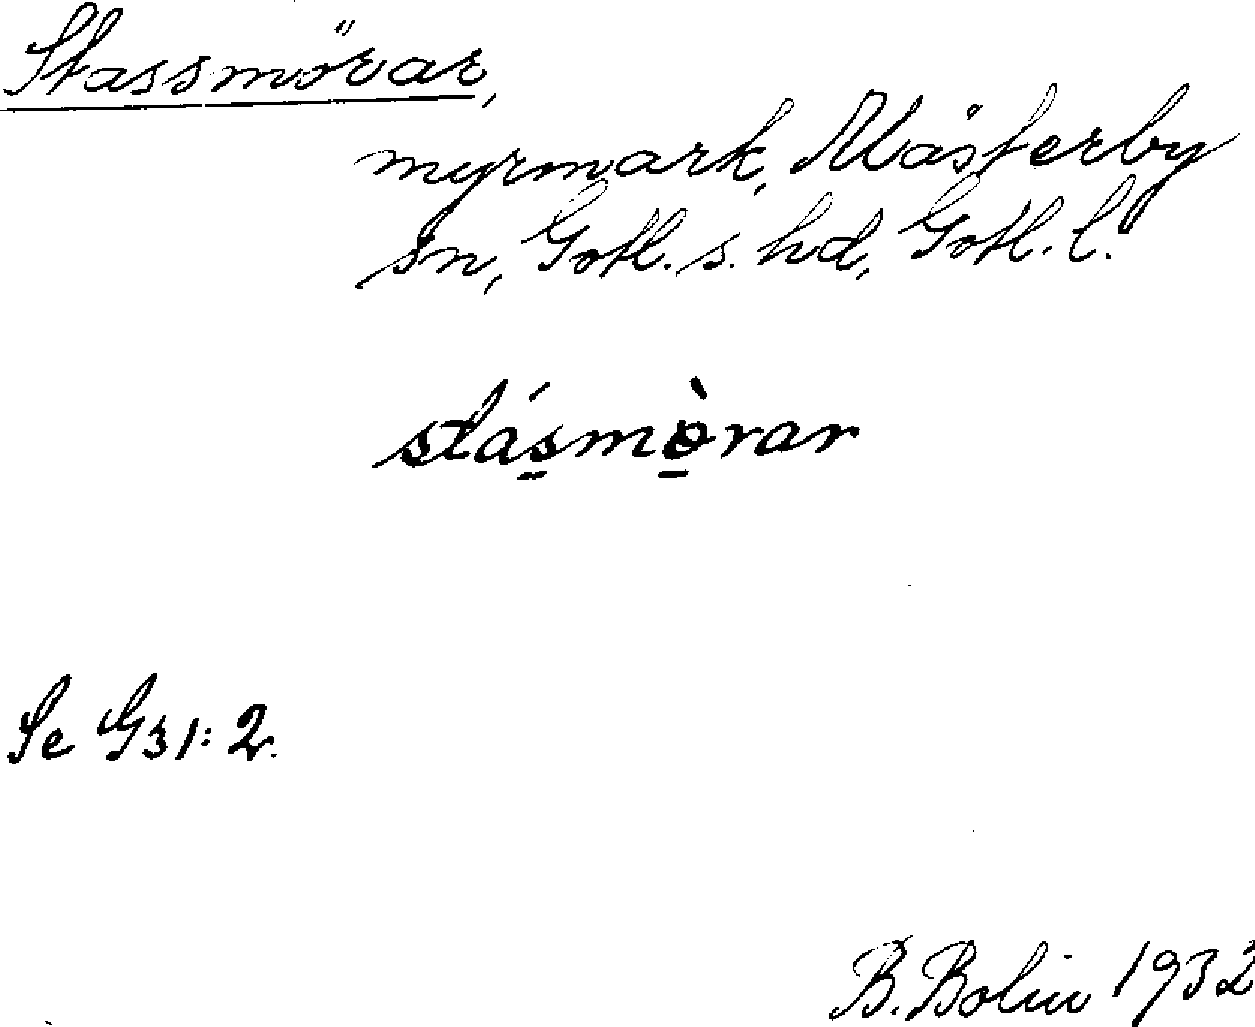 Stassmörar,
myrmark, Mästerby
sn, Gotl. s. hd, Gotl. l.
stás̱mò̱rar
Se G31:2.
B. Bolin 1932